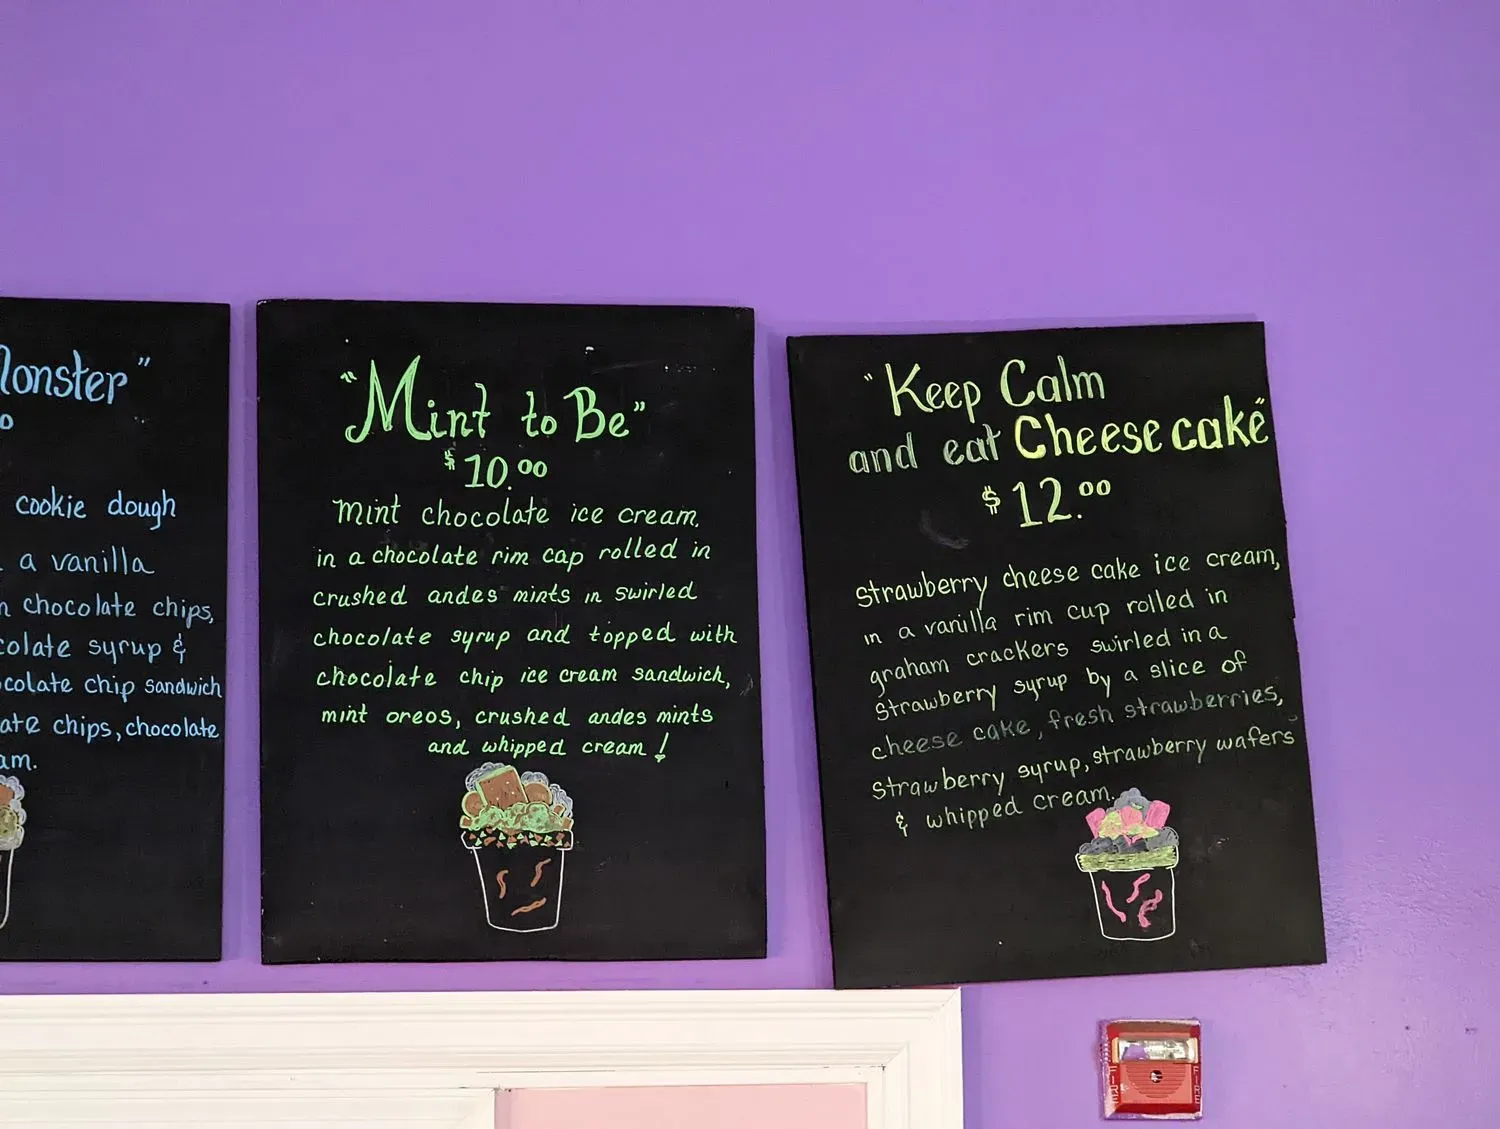 "
cookie dough
a vanilla
chocolate chips,
syrup &
chip sandwich
chips, chocolate
"Mint to Be"
$10.00
mint chocolate ice cream,
in a chocolate rim cap rolled in
crushed andes mints in swirled
chocolate syrup and topped with
chocolate chip ice cream sandwich,
mint oreos, crushed andes mints
and whipped cream!
"Keep Calm
and eat Cheese cake"
$12.00
strawberry cheese cake ice cream,
in a vanilla rim cup rolled in
graham crackers swirled in a
strawberry syrup by a slice of
cheese cake, fresh strawberries,
strawberry syrup, strawberry wafers
& whipped cream.
FIRE
FIRE